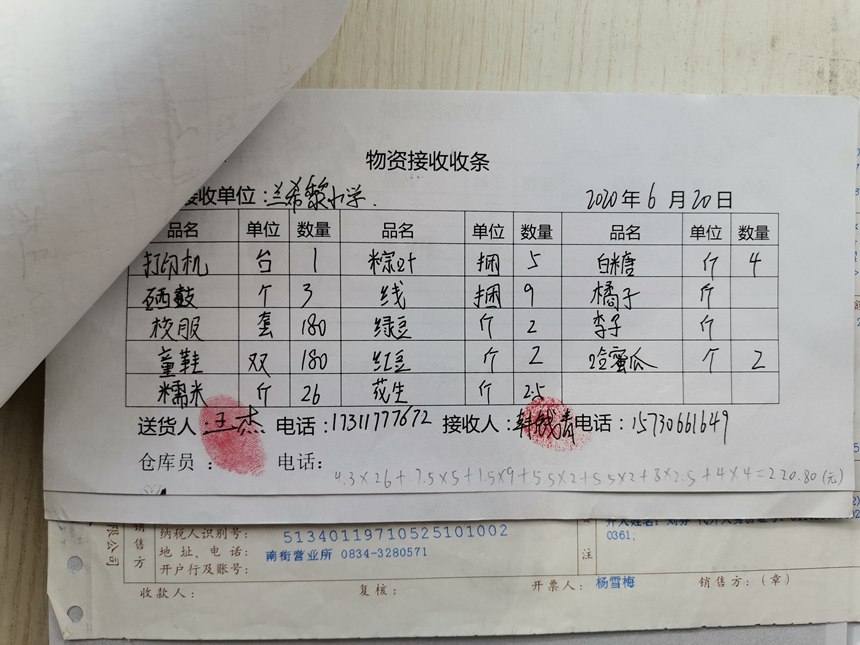 物资接收收条
接收单位：兰希黎小学. 2020年6月20日
品名 单位 数量 品名 单位 数量 品名 单位 数量
打印机 台 1 粽叶 捆 5 白糖 斤 4
硒鼓 个 3 线 捆 9 橘子 斤
校服 套 180 绿豆 斤 2 李子 斤
童鞋 双 180 红豆 斤 2 哈蜜瓜 个 2
糯米 斤 26 花生 斤 2.5
送货人：王杰 电话：17311777672 接收人：韩 青 电话：15730661649
仓库员： 电话：
4.3×26+7.5×5+1.5×9+5.5×2+5.5×2+8×2.5+4×4=220.80(元)
限公司
销售方
纳税人识别号： 51340119710525101002
地址、电话： 南街营业所 0834-3280571
开户行及账号：
注
0361;
收款人： 复核： 开票人： 杨雪梅 销售方：（章）